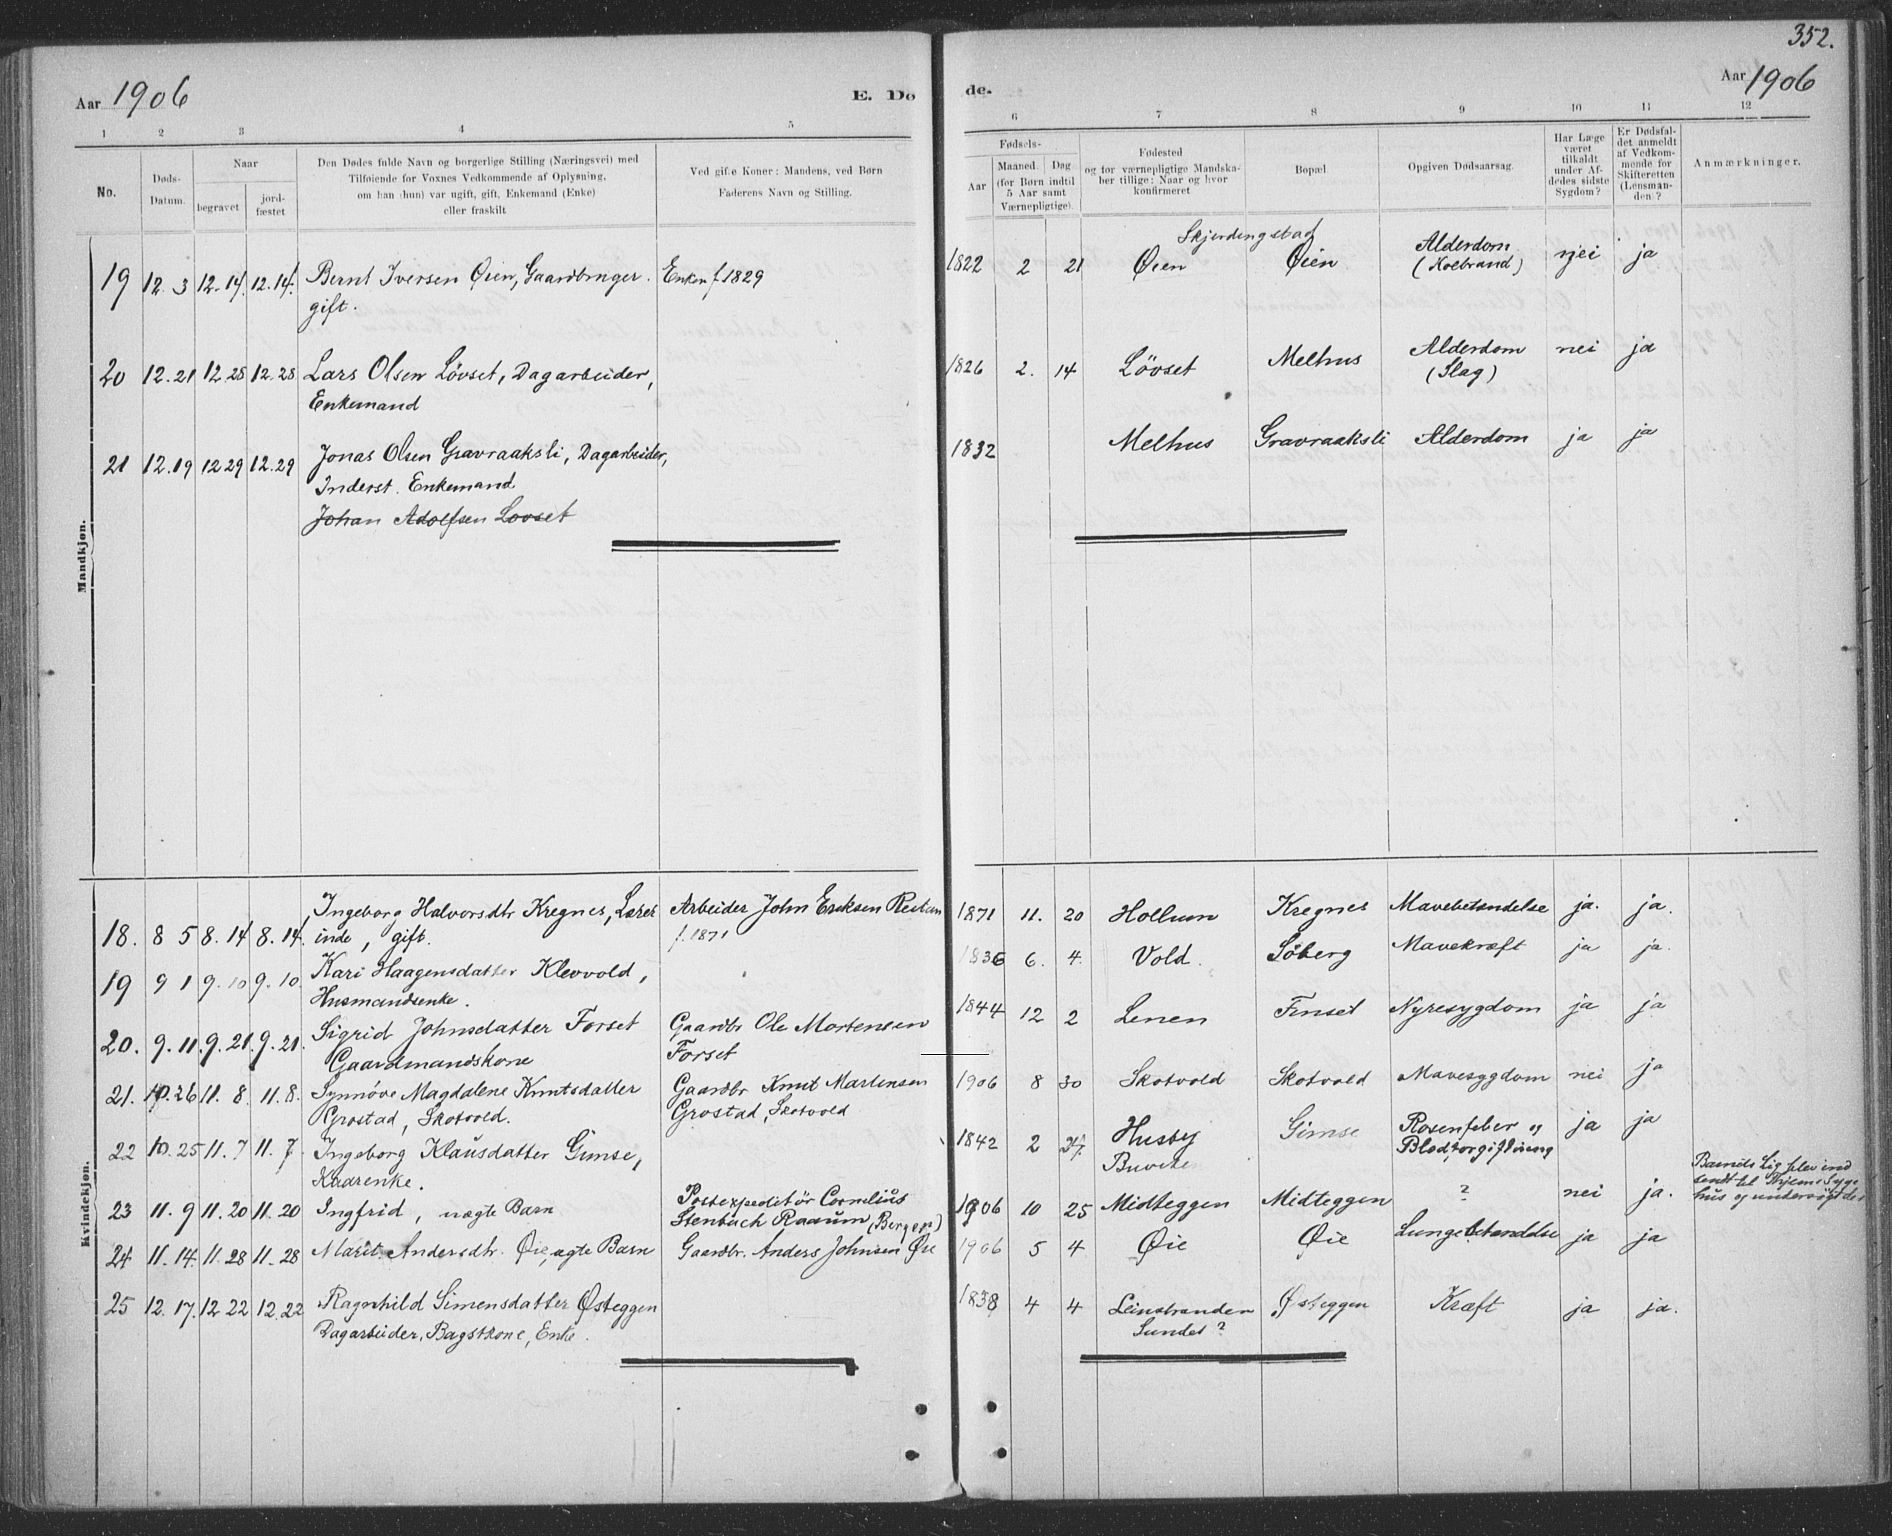 352.
Aar 1906
E. Dø
de.
Aar 1906
1 2 3 4 5
6 7 8 9 10 11 12
No.
Døds-
Datum.
Naar
begravet
jord-
fæstet
Den Dødes fulde Navn og borgerlige Stilling (Næringsvei) med
Tilføiende for Voxnes Vedkommende af Oplysning,
om han (hun) var ugift, gift, Enkemand (Enke)
eller fraskilt
Ved gifte Koner: Mandens, ved Børn
Faderens Navn og Stilling.
Fødsels-
Aar
Maaned. Dag
(for Børn indtil
5 Aar samt
Værnepligtige).
Fødested
og for værnepligtige Mandska-
ber tillige: Naar og hvor
konfirmeret
Bopæl
Opgiven Dødsaarsag.
Har Læge
været
tilkaldt
under Af-
dødes sidste
Sygdom?
Er Dødsfal-
det anmeldt
af Vedkom-
mende for
Skifteretten
(Lensman-
den)?
Anmærkninger.
Mandkjøn.
19 12. 3 12. 14. 12. 14. Bernt Iversen Øien, Gaardbruger. Enken f. 1829
gift.
Skjerdingstad
1822 2 21 Øien Øien Alderdom nei ja
(Kolbrand)
20 12. 21 12 28 12. 28 Lars Olsen Lövset, Dagarbeider,
Enkemand
1826 2. 14 Lövset Melhus Alderdom nei ja
(Slag)
21 12. 19 12 29 12. 29 Jonas Olsen Gravraaksli, Dagarbeider,
Inderst. Enkemand
Johan Adolfsen Lovset
1832 Melhus Gravraaksli Alderdom ja ja
Kvindekjøn.
18. 8 5 8. 14 8. 14. Ingeborg Halvorsdtr Kregnes, Lærer Arbeider John Eriksen Reitan
inde, gift. f. 1871
1871 11. 20 Hollum Kregnes Mavebetændelse ja. ja.
19 9 1 9. 10 9. 10. Kari Haagensdatter Klevvold,
Husmandsenke.
1836 6. 4. Vold. Söberg Mavekræft ja ja.
20. 9. 11. 9. 21. 9. 21. Sigrid Johnsdatter Forset Gaardbr Ole Mortensen
Gaardmandskone Forset
1844 12 2 Lenen Finset Nyresygdom ja ja
21. 10. 26 11. 8. 11. 8. Synnöve Magdalene Knutsdatter Gaardbr Knut Martinsen
Grostad, Skotvold. Grostad, Skotvold
1906 8 30 Skotvold Skotvold Mavesygdom nei ja
22 10. 25 11. 7 11. 7. Ingeborg Klausdatter Gimse,
Kaarenke.
1842 2 Husby Gimse Rosenfeber og ja ja
Blodforgiftning
23 11. 9 11. 20 11. 20 Ingfrid, uægte Barn Postexpeditör Cornelius
Stenbach Raaum (Bergen)
1906 10 25 Midteggen Midteggen ? nei ja.
Barnets Lig blev ind
sendt til
hus og undersögt der
24 11. 14. 11. 28 11. 28 Marit Andersdtr. Øie, ægte Barn Gaardbr. Anders Johnsen Øie
1906 5 4 Øie Øie Lungebetændelse ja ja
25 12. 17. 12 22 12. 22 Ragnhild Simensdatter Østeggen
Dagarbeider, Bagstkone, Enke.
1838 4 4 Leinstranden Østeggen Kræft ja ja.
Sundet?